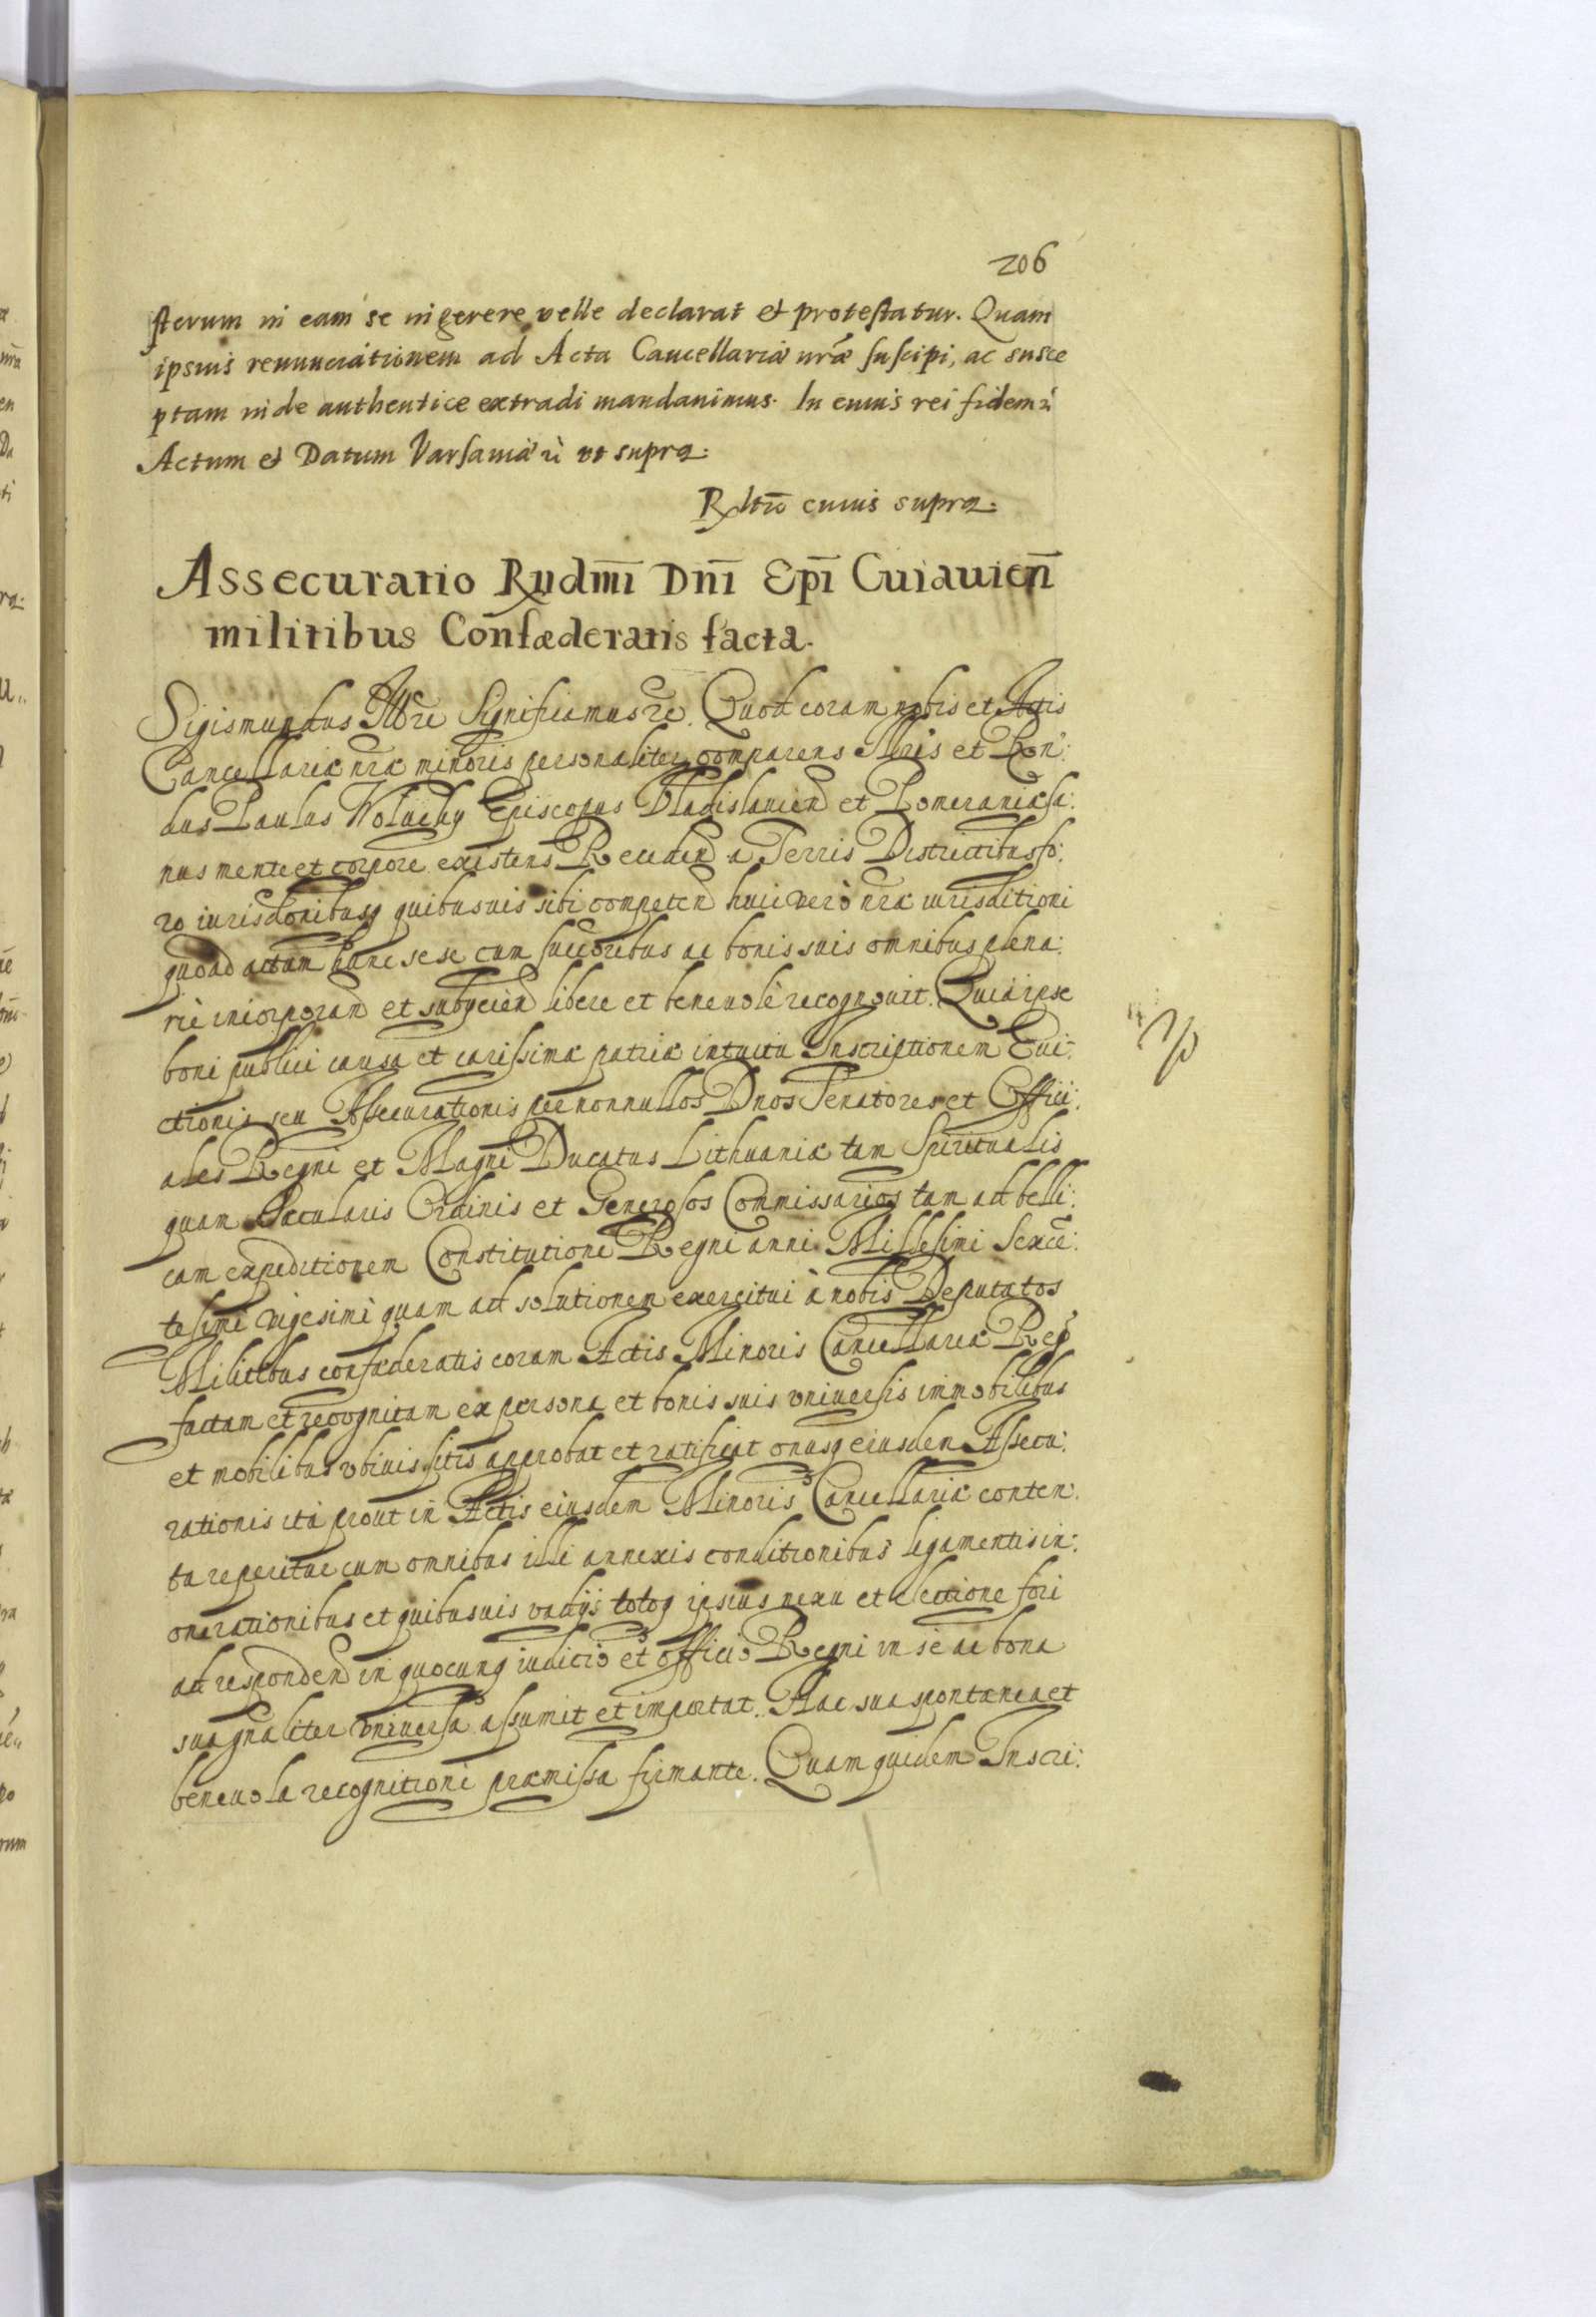 206
sterum in eam se ingerere velle declarat et protestatur. Quam
ipsius renunciationem ad Acta Cancellariæ nræ suscipi, ac susce
ptam inde authentice extradi mandavimus. In cuius rei fidem
Actum et Datum Varsaviæ ut supra:
Rltio cuius supra:
Assecuratio Rndmi Dni Epi Cuiavien
militibus Confæderatis facta.
Sigismundus Significamus Quod coram nobis et Actis
Cancellariæ nræ minoris personaliter comparens Illris et Rnd:
dus Paulus Wolucky Episcopus Vladislavien et Pomeraniæ sa:
nus mente et corpore existens Receden a Terris Districtibus fo:
ro iurisdonibusq quibusvis sibi competen huic vero nræ iurisditioni
quoad actum hunc sese cum succoribus ac bonis suis omnibus plena:
rie incorporan et subycien libere et benevole recognovit. Quia ipse
boni publici causa et carissimæ patriæ intuitu Inscriptionem Evi:
ctionis seu Assecurationis per nonnullos Dnos Senatores et Offici:
ales Regni et Magni Ducatus Lithuaniæ tam Spiritualis
quam Sæcularis Ordinis et Generosos Commissarios tam ad belli:
cam expeditionem Constitutione Regni anni Millesimi Sexcē:
tesimi vigesimi quam ad solutionem exercitui à nobis Deputatos
Militibus confæderatis coram Actis Minoris Cancellariæ Reg
factam et recognitam ex persona et bonis suis vniversis immobilibus
et mobilibus vbivis sitis approbat et ratificat onusq eiusdem Assecu:
rationis ita prout in Actis eiusdem Minoris Cancellariæ conten:
ta reperitur cum omnibus illi annexis conditionibus ligamentis in:
onerationibus et quibusvis vadijs totoq ipsius nexu et electione fori
ad responden in quocunq iudicio et officio Regni in se ac bona
sua gnaliter vniversa assumit et importat. Hac sua spontanea et
benevola recognitione præmissa firmante. Quam quidem Inscri: